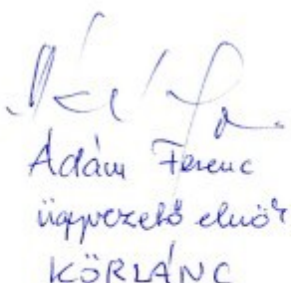 Ádám Ferenc
ügyvezető elnök
KÖRLÁNC